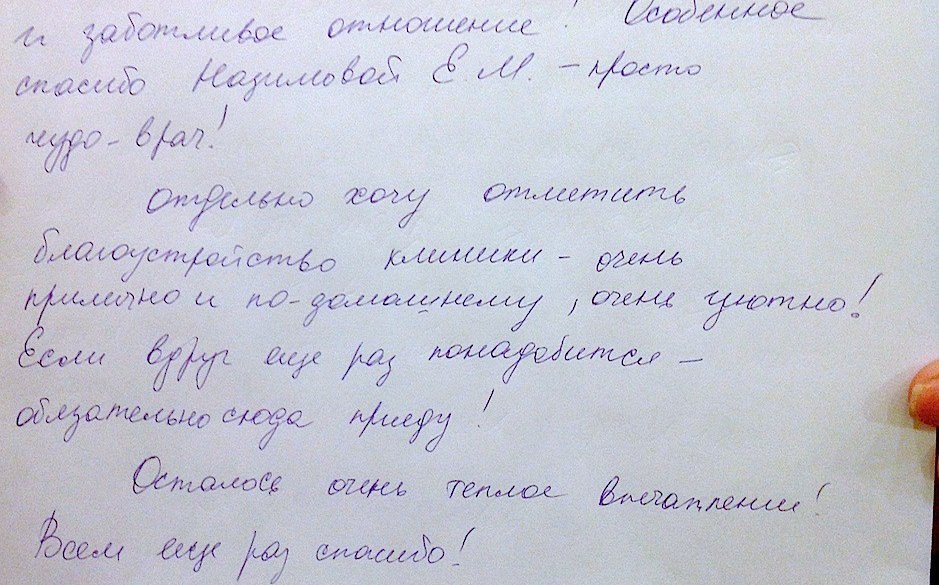 и заботливое отношение! Особенное
спасибо Назимовой Е.М. – просто
чудо-врач!
Отдельно хочу отметить
благоустройство клиники – очень
прилично и по-домашнему, очень уютно!
Если вдруг еще раз понадобится –
обязательно сюда приеду!
Осталось очень теплое впечатление!
Всем еще раз спасибо!